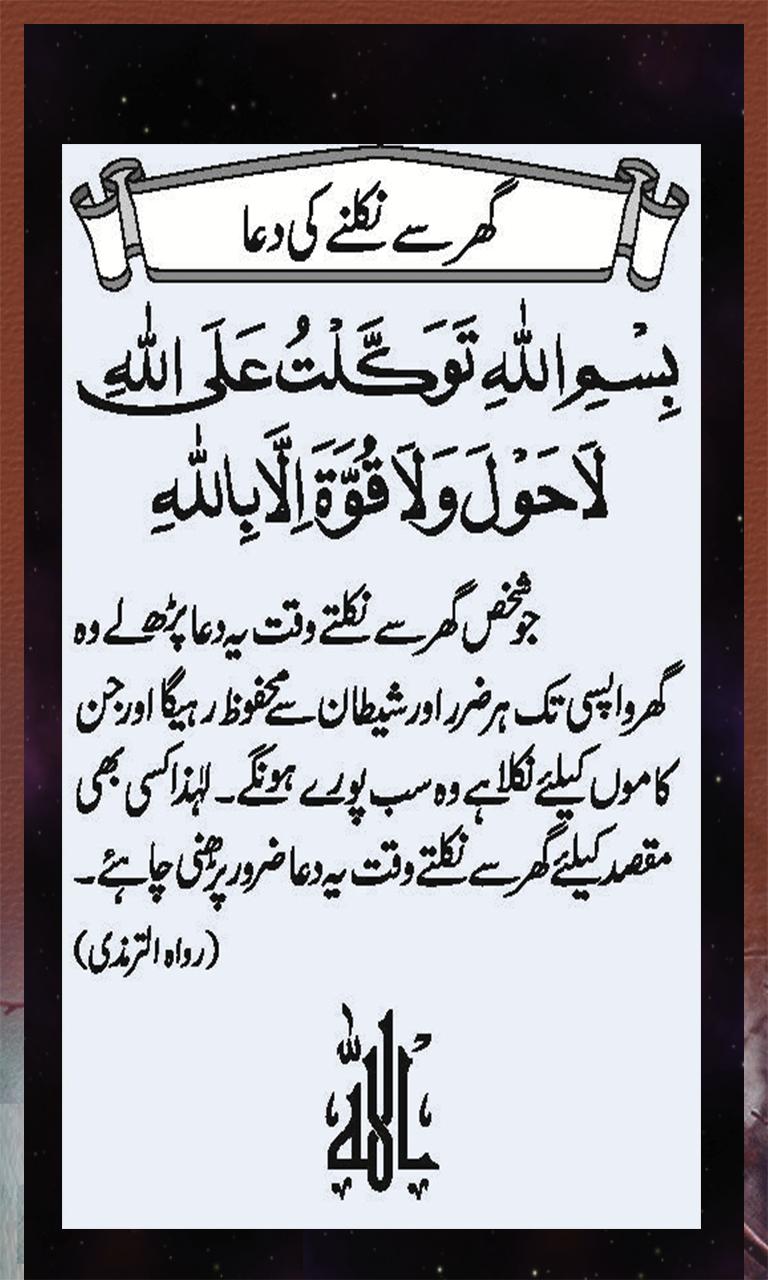 گھر سے نکلنے کی دعا
بِسْمِ اللهِ تَوَكَّلْتُ عَلَى اللهِ
لَا حَوْلَ وَلَا قُوَّةَ اِلَّا بِاللهِ
جو شخص گھر سے نکلتے وقت یہ دعا پڑھ لے وہ
گھر واپسی تک ہر ضرر اور شیطان سے محفوظ رہیگا اور جن
کاموں کیلئے نکلا ہے وہ سب پورے ہونگے۔ لہٰذا کسی بھی
مقصد کیلئے گھر سے نکلتے وقت یہ دعا ضرور پڑھنی چاہئے۔
(رواہ الترمذی)
یا اللہ